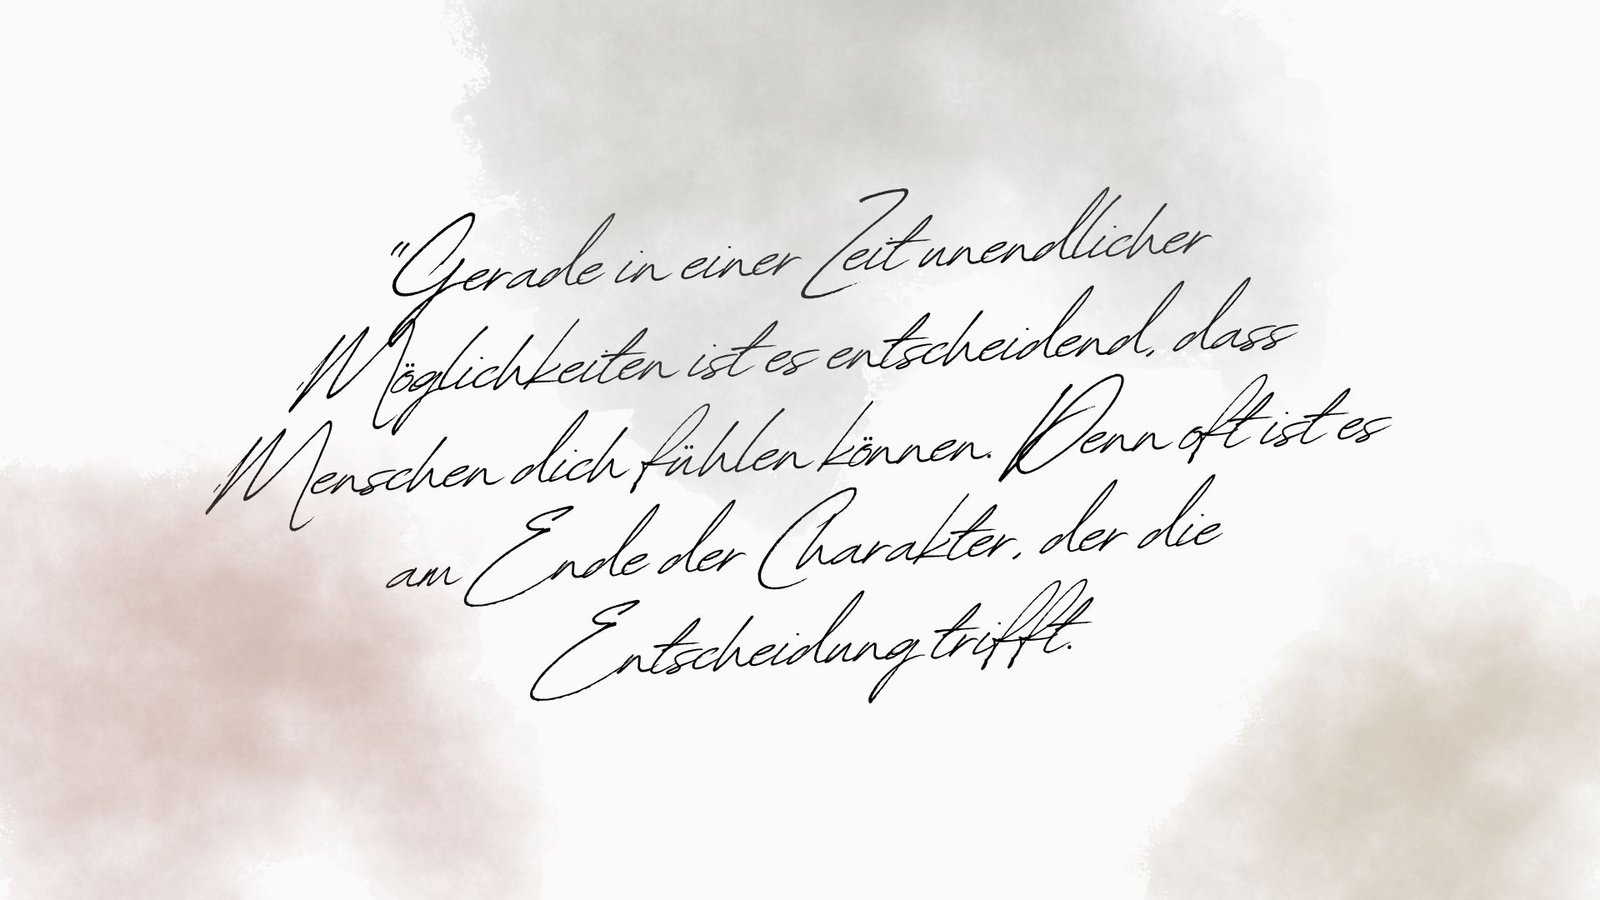 "Gerade in einer Zeit unendlicher
Möglichkeiten ist es entscheidend, dass
Menschen dich fühlen können. Denn oft ist es
am Ende der Charakter, der die
Entscheidung trifft.